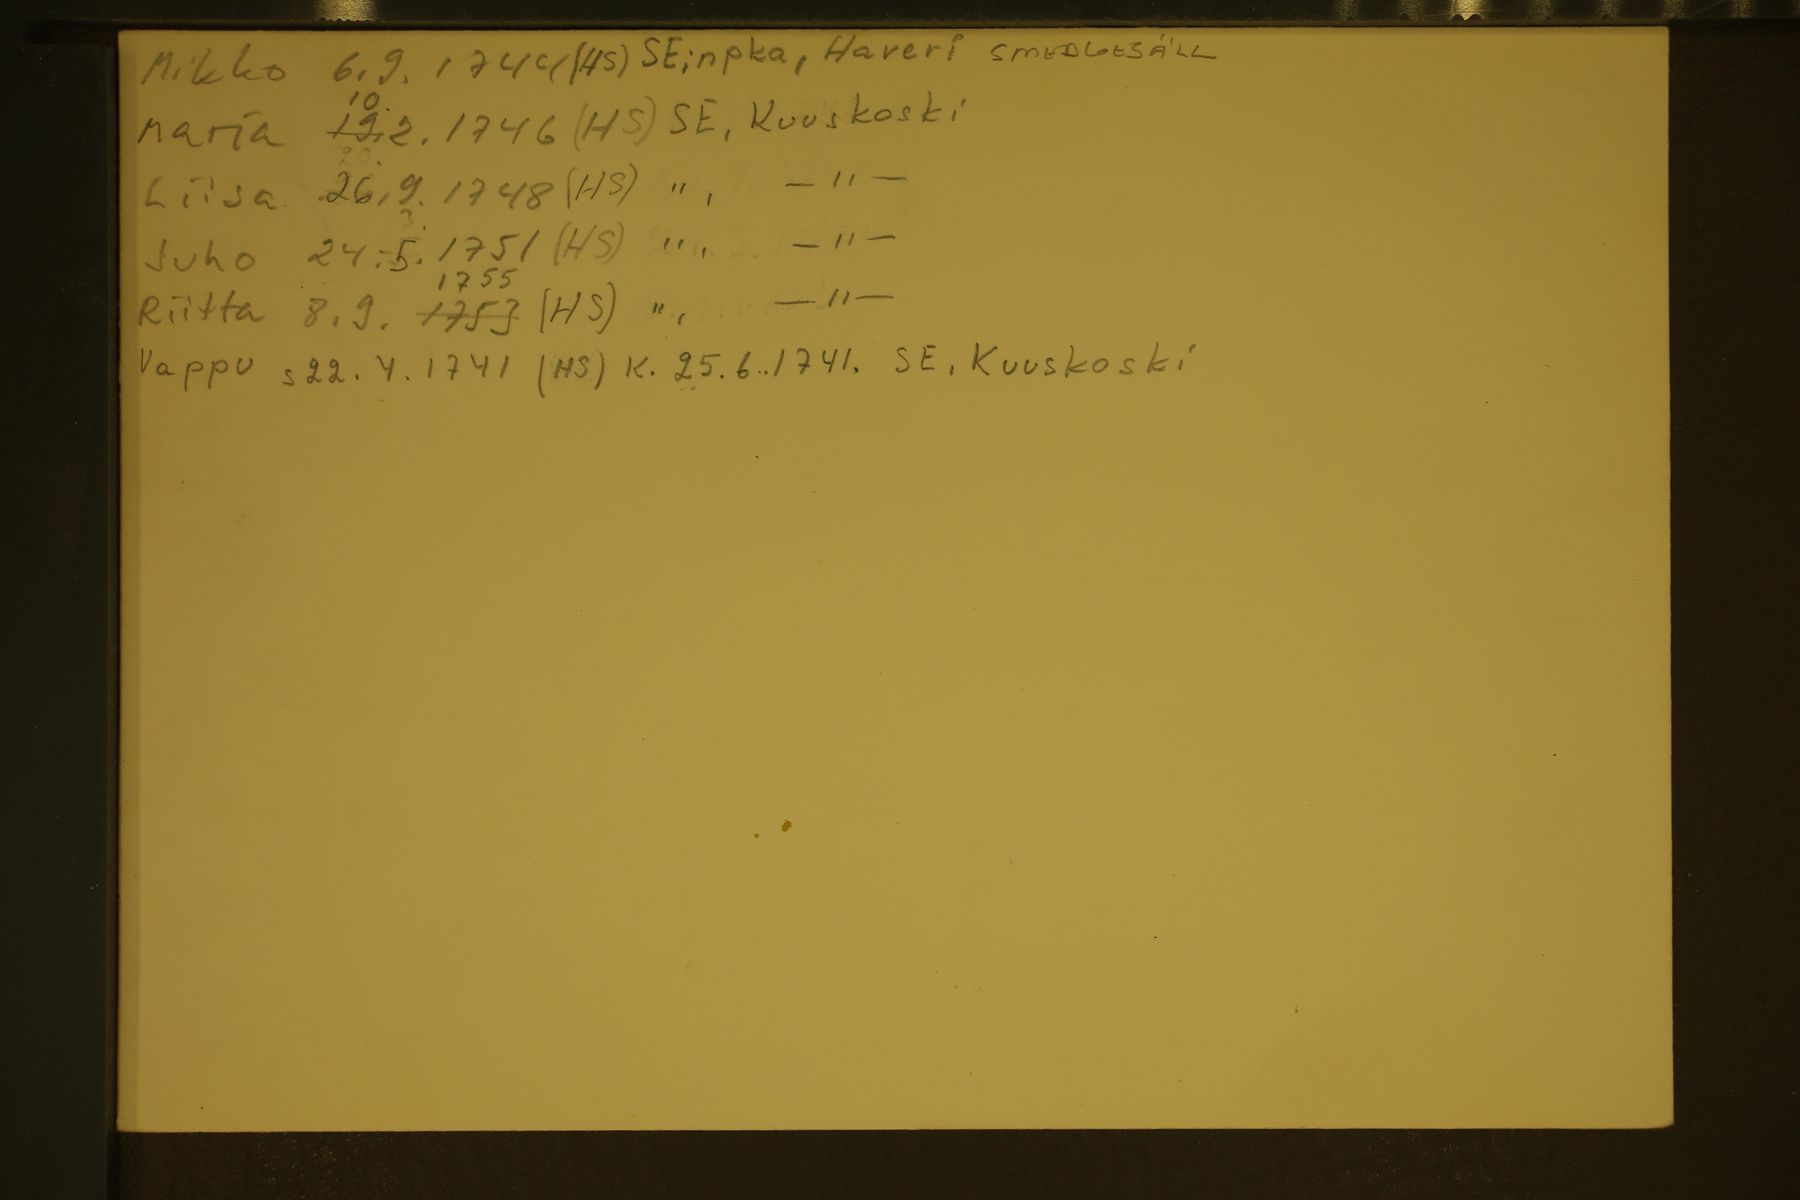 Mikko 6.9.1744 (HS) SE, npka, Haveri SMEDGESÄLL
10.
Maria 19.2.1746 (HS) SE, Kuuskoski
20.
Liisa 26.9.1748 (HS) ", —"—
3.
Juho 24.5.1751 (HS) ", —"—
1755
Riitta 8.9. 1753 (HS) ", —"—
Vappu s 22.4.1741 (HS) K. 25.6..1741. SE, Kuuskoski